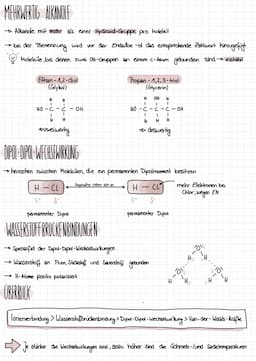 MEHRWERTIGE ALKANOLE
→ Alkanole mit mehr als einer Hydroxid-Gruppe pro Molekül
→ bei der Benennung wird vor der Endsilbe -ol das entsprechende Zahlwort hinzugefügt
Moleküle, bei denen zwei OH-Gruppen an einem C-Atom gebunden sind → instabil
Ethan-1,2-diol
(Glykol)
Propan-1,2,3-triol
(Glycerin)
H H
HO-C-C-OH
H H
H OH H
HO-C-C-C-OH
H H H
→ zweiwertig
→ dreiwertig
DIPOL-DIPOL-WECHSELWIRKUNG
→ herrschen zwischen Molekülen, die ein permanentes Dipolmoment besitzen
H - Cl
H - Cl
mehr Elektronen bei
Chlor, wegen EN
δ+ δ-
δ+ δ-
permanenter Dipol
permanenter Dipol
WASSERSTOFFBRÜCKENBINDUNGEN
→ Spezialfall der Dipol-Dipol-Wechselwirkungen
→ Wasserstoff an Fluor, Stickstoff und Sauerstoff gebunden
→ H-Atome positiv polarisiert
ÜBERBLICK
Ionenbindung > Wasserstoffbrückenbindung > Dipol-Dipol-Wechselwirkung > Van-der-Waals-Kräfte
je stärker die Wechselwirkungen sind, desto höher sind die Schmelz-/und Siedetemperaturen